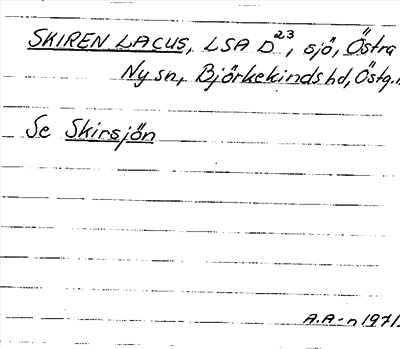 SKIREN LACUS, LSA D23, sjö, Östra
Ny sn, Björkekinds hd, Östg.
Se Skirsjön
A.A-n 1971.